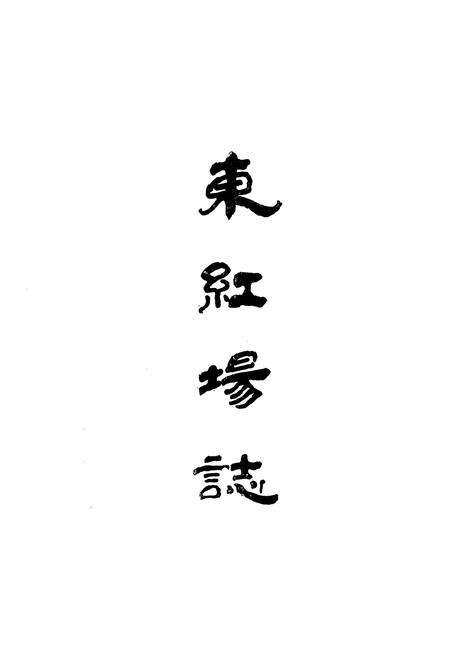 東紅場誌